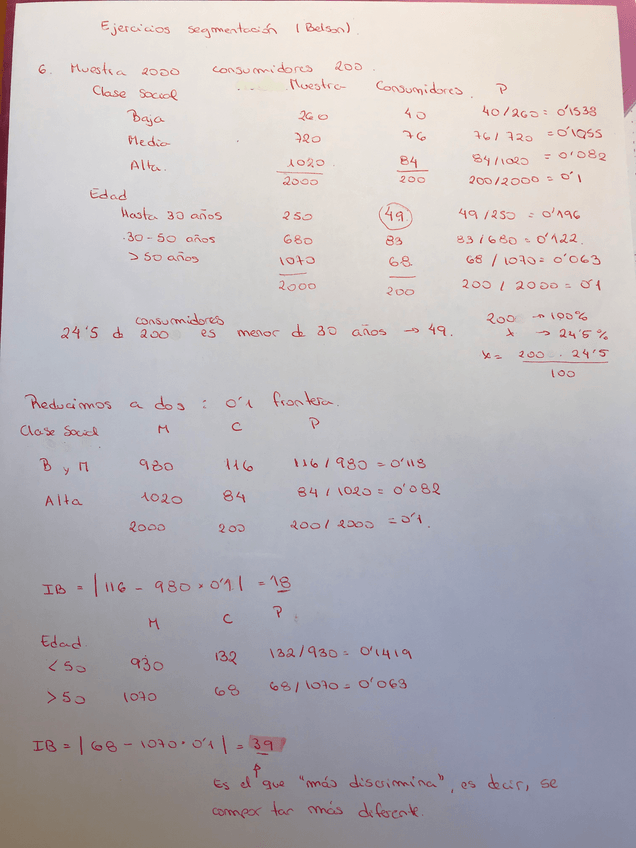 Ejercicios segmentación (Belson).
6. Muestra 2000 consumidores 200.
Clase Social Muestra Consumidores P
Baja 260 40 40/260 = 0'1538
Media 720 76 76/720 = 0'1055
Alta. 1020 84 84/1020 = 0'082
2000 200 200/2000 = 0'1
Edad
Hasta 30 años 250 49 49/250 = 0'196
30-50 años 680 83 83/680 = 0'122.
>50 años 1070 68 68/1070 = 0'063
2000 200 200/2000 = 0'1
consumidores 200 → 100%
24'5 d 200 es menor de 30 años → 49. x → 24'5%
x = 200 . 24'5
100
Reducimos a dos : 0'1 frontera.
Clase Social M C P
B y M 980 116 116/980 = 0'118
Alta 1020 84 84/1020 = 0'082
2000 200 200/2000 = 0'1.
IB = |116 - 980 × 0'1| = 18
M C P
Edad
<50 930 132 132/930 = 0'1419
>50 1070 68 68/1070 = 0'063
IB = |68 - 1070 · 0'1| = 39
Es el que "más discrimina", es decir, se
compor tar más diferente.